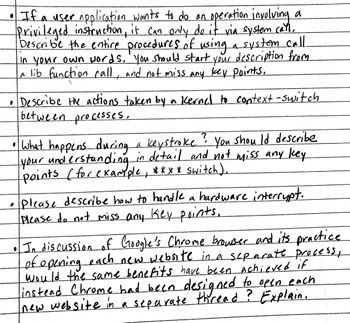 • If a user application wants to do an operation involving a
Privileged instruction, it can only do it via system call.
Describe the entire procedures of using a system call
in your own words. You should start your description from
a lib function call, and not miss any key points.
• Describe the actions taken by a Kernel to context-switch
between processes.
• What happens during a keystroke? You should describe
your understanding in detail and not miss any key
points (for example, **** switch).
• Please describe how to handle a hardware interrupt.
Please do not miss any key points.
• In discussion of Google's Chrome browser and its practice
of opening each new website in a separate process,
would the same benefits have been achieved if
instead Chrome had been designed to open each
new website in a separate thread? Explain.